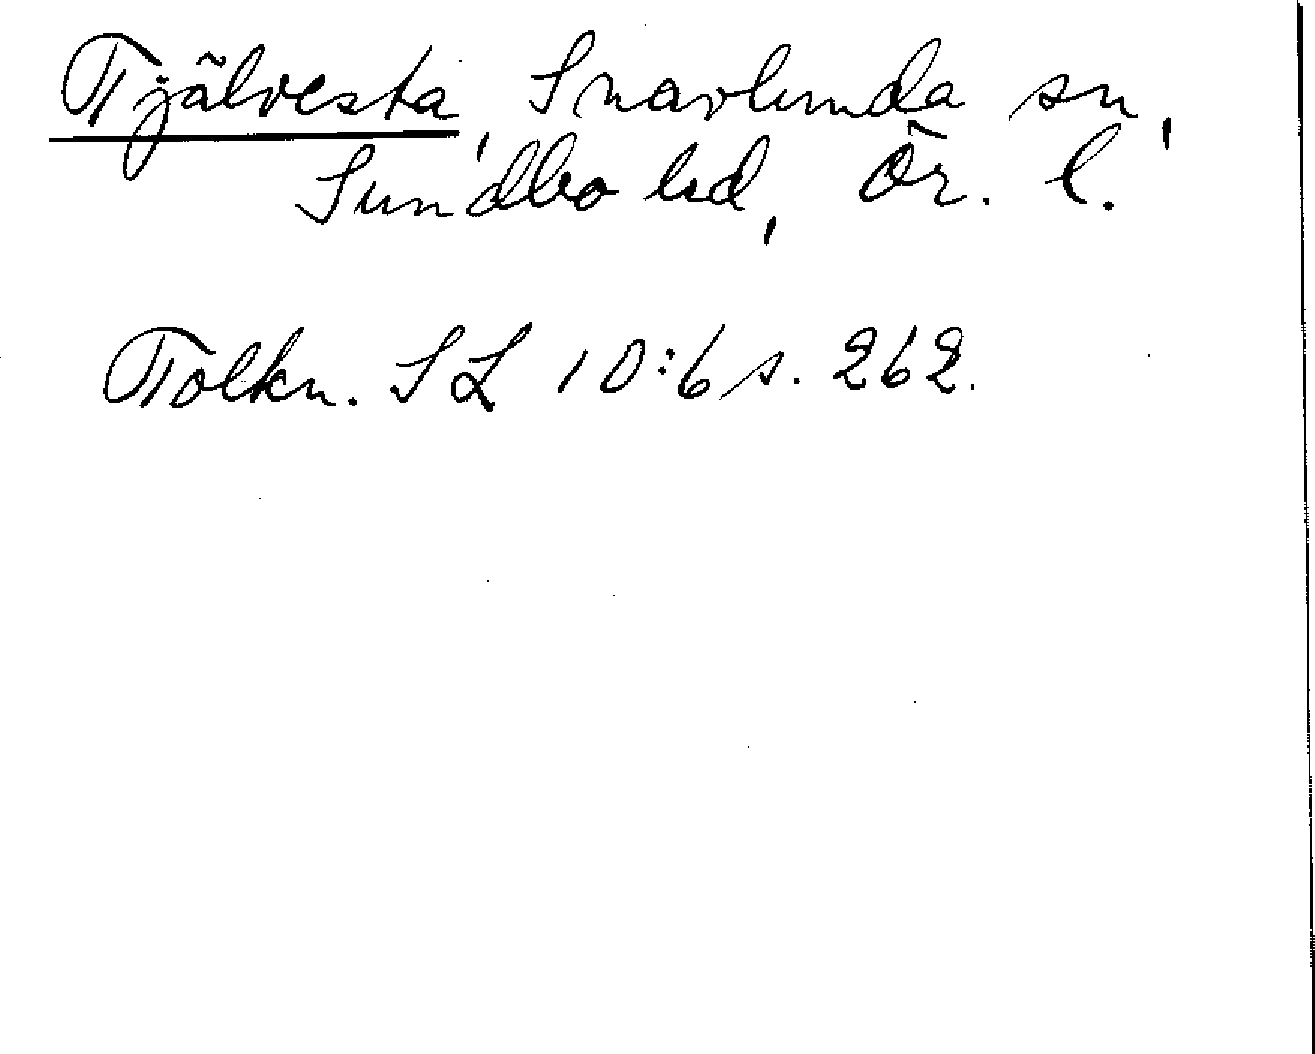 Tjälvesta, Snavlunda sn,
Sundbo hd, Ör. l.
Tolkn. SL 10:6 s. 262.